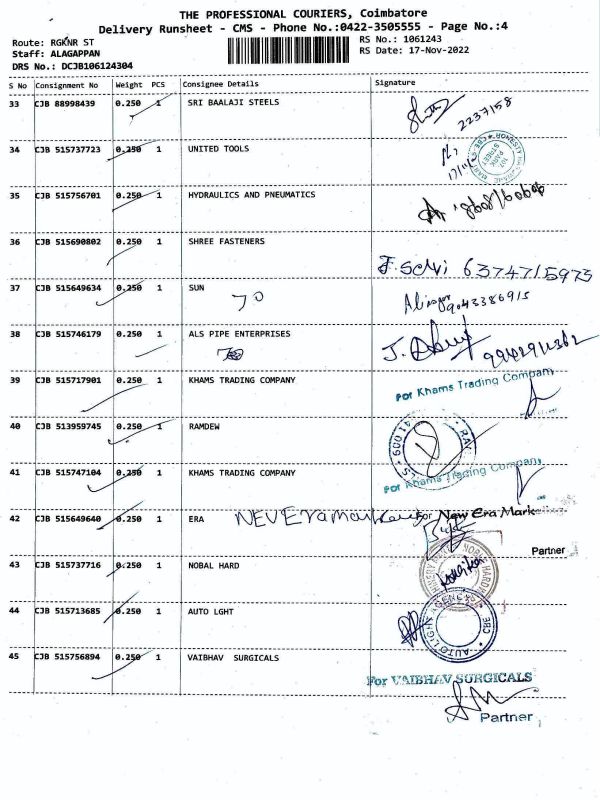 THE PROFESSIONAL COURIERS, Coimbatore
Delivery Runsheet - CMS - Phone No.:0422-3505555 - Page No.:4
Route: RGKNR ST
RS No.: 1061243
Staff: ALAGAPPAN
RS Date: 17-Nov-2022
DRS No.: DCJB106124304
S No Consignment No Weight PCS Consignee Details Signature
33 CJB 88998439 0.250 1 SRI BAALAJI STEELS
2237158
34 CJB 515737723 0.250 1 UNITED TOOLS
35 CJB 515756701 0.250 1 HYDRAULICS AND PNEUMATICS
36 CJB 515690802 0.250 1 SHREE FASTENERS
6374715973
37 CJB 515649634 0.250 1 SUN
70
9043386915
38 CJB 515746179 0.250 1 ALS PIPE ENTERPRISES
39 CJB 515717901 0.250 1 KHAMS TRADING COMPANY
For Khams Trading Company
40 CJB 513959745 0.250 1 RAMDEW
41 CJB 515747104 0.250 1 KHAMS TRADING COMPANY
For Khams Trading Company
42 CJB 515649640 0.250 1 ERA
For New Era Mark
Partner
43 CJB 515737716 0.250 1 NOBAL HARD
44 CJB 515713685 0.250 1 AUTO LGHT
45 CJB 515756894 0.250 1 VAIBHAV SURGICALS
For VAIBHAV SURGICALS
Partner